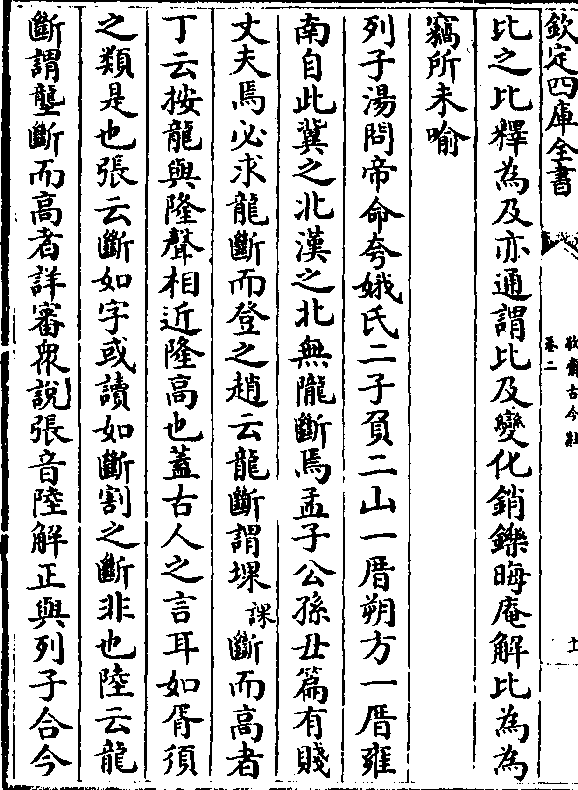 欽定四庫全書
敬齋古今黈
卷二
十
比之比釋為及亦通謂比及變化銷鑠晦庵解比為為
竊所未喻
列子湯問帝命夸娥氏二子負二山一厝朔方一厝雍
南自此冀之北漢之北無隴斷焉孟子公孫丑篇有賤
丈夫焉必求龍斷而登之趙云龍斷謂堁課斷而高者
丁云按龍與隆聲相近隆高也蓋古人之言耳如胥須
之類是也張云斷如字或讀如斷割之斷非也陸云龍
斷謂壟斷而高者詳審眾說張音陸解正與列子合今